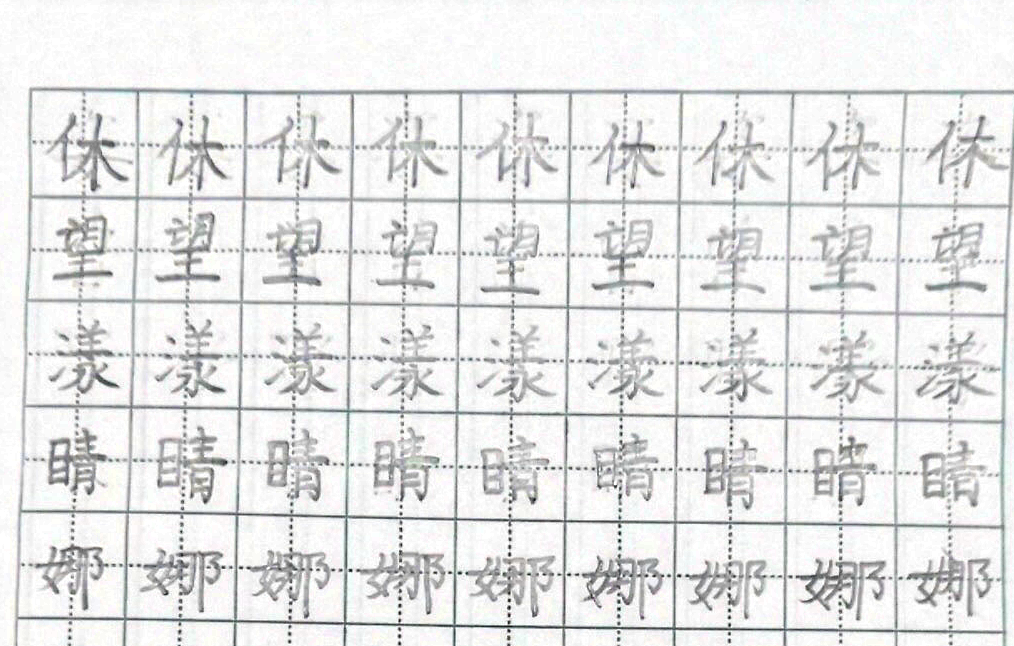 休休休休休休休休休
望望望望望望望望望
漾漾漾漾漾漾漾漾漾
睛睛睛睛睛睛睛睛睛
娜娜娜娜娜娜娜娜娜